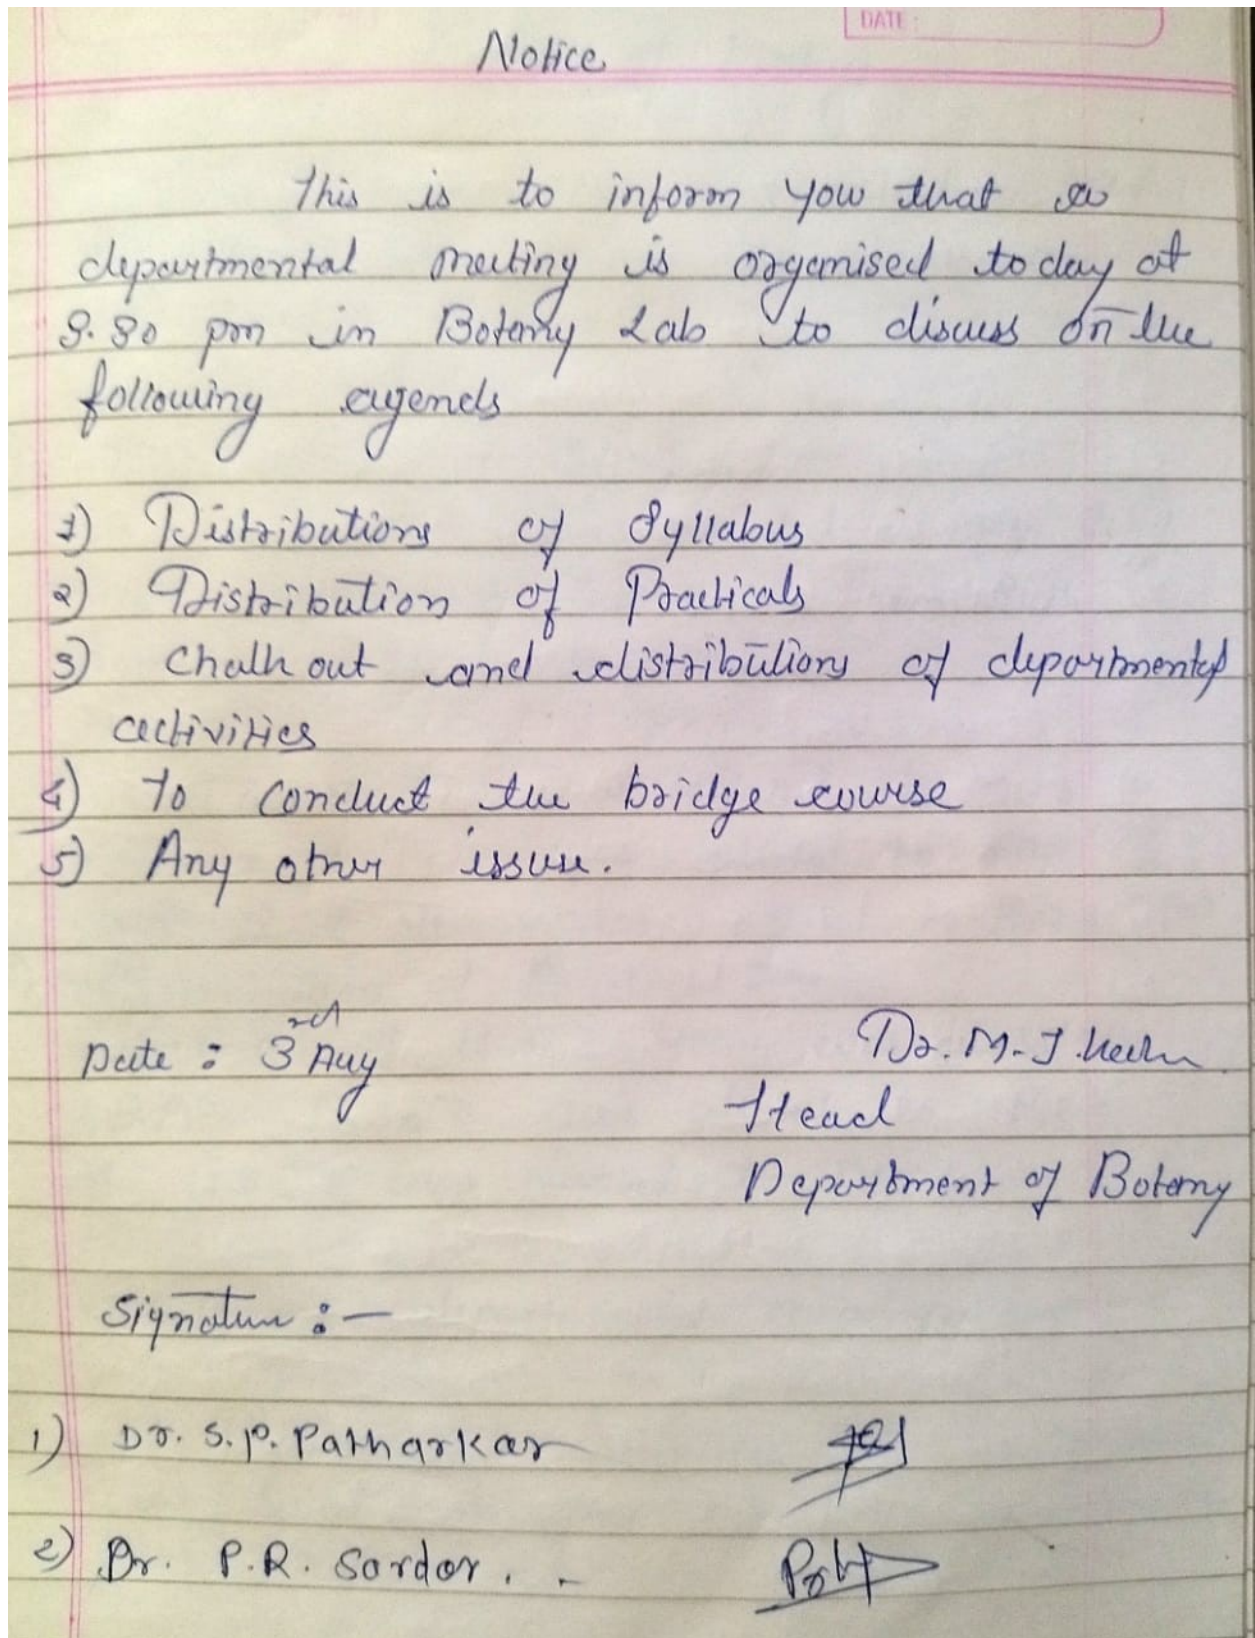 DATE :
Notice
This is to inform you that a
departmental meeting is organised today at
3.30 pm in Botany Lab to discuss on the
following agends
1) Distributions of Syllabus
2) Distribution of Practicals
3) Chalk out and distributions of departmental
activities
4) To conduct the bridge course
5) Any other issue.
Date : 3rd Aug
Dr. M. J.
Head
Department of Botany
Signature :-
1) Dr. S. P. Patharkar
2) Dr. P. R. Sardar . .